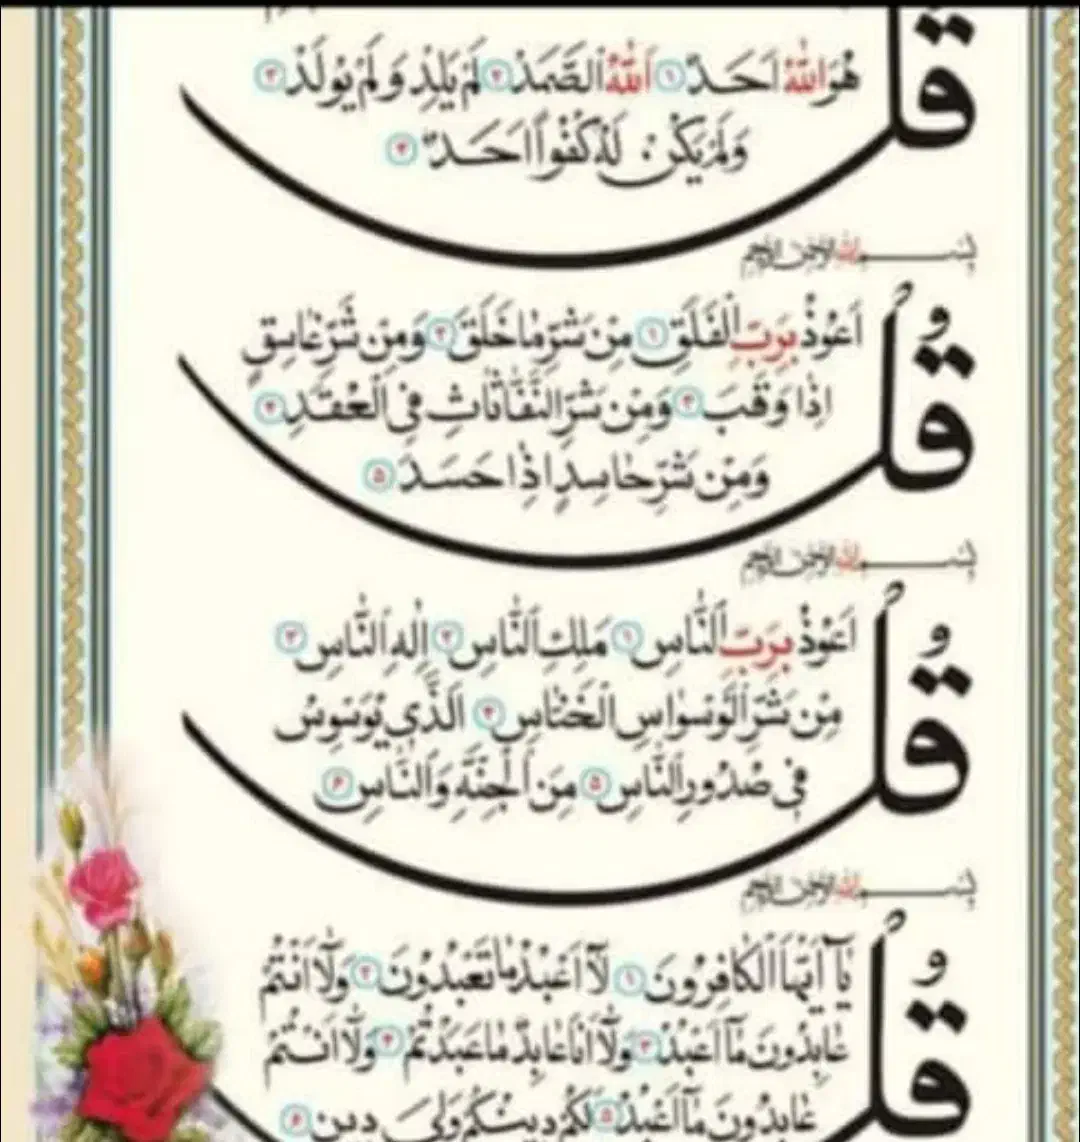 قُلْ
هُوَ اللّٰهُ اَحَدٌ ١ اَللّٰهُ الصَّمَدُ ٢ لَمْ يَلِدْ وَ لَمْ يُولَدْ ٣
وَلَمْ يَكُنْ لَهُ كُفُوًا اَحَدٌ ٤
بِسْمِ اللهِ الرَّحْمٰنِ الرَّحِيمِ
قُلْ
اَعُوذُ بِرَبِّ الْفَلَقِ ١ مِنْ شَرِّ مٰا خَلَقَ ٢ وَمِنْ شَرِّ غٰاسِقٍ
اِذٰا وَقَبَ ٣ وَمِنْ شَرِّ النَّفّٰاثٰاتِ فِي الْعُقَدِ ٤
وَمِنْ شَرِّ حٰاسِدٍ اِذٰا حَسَدَ ٥
بِسْمِ اللهِ الرَّحْمٰنِ الرَّحِيمِ
قُلْ
اَعُوذُ بِرَبِّ النّٰاسِ ١ مَلِكِ النّٰاسِ ٢ اِلٰهِ النّٰاسِ ٣
مِنْ شَرِّ الْوَسْوٰاسِ الْخَنّٰاسِ ٤ اَلَّذِي يُوَسْوِسُ
فِي صُدُورِ النّٰاسِ ٥ مِنَ الْجِنَّةِ وَالنّٰاسِ ۶
بِسْمِ اللهِ الرَّحْمٰنِ الرَّحِيمِ
قُلْ
يٰآ اَيُّهَا الْكٰافِرُونَ ١ لٰآ اَعْبُدُ مٰا تَعْبُدُونَ ٢ وَلٰآ اَنْتُمْ
عٰابِدُونَ مٰآ اَعْبُدُ ٣ وَلٰآ اَنَا عٰابِدٌ مٰا عَبَدْتُمْ ٤ وَلٰآ اَنْتُمْ
عٰابِدُونَ مٰآ اَعْبُدُ ٥ لَكُمْ دِينُكُمْ وَلِيَ دِينِ ۶